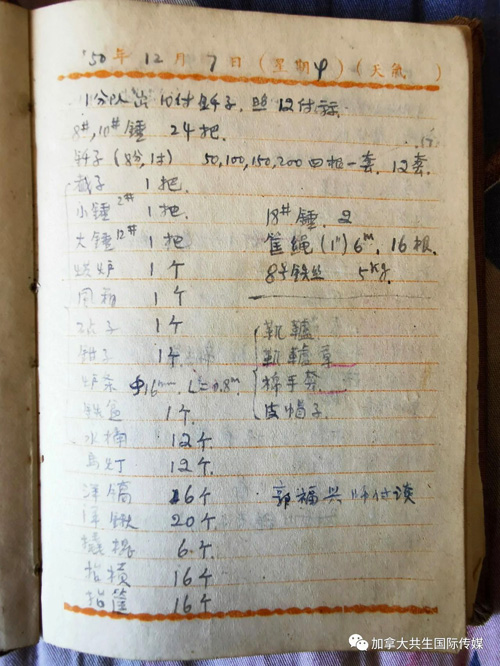 '50年 12月 7日 (星期4) (天氣 )
1分队出 10付钎子, 照 12付
8#, 10# 錘 24把.
钎子 (8分, 1寸) 50,100,150,200 四根一套. 12套.
截子 1把.
小錘 2# 1把. 18# 錘. 2
大錘 12# 1把 筐绳 (1") 6m, 16根.
烘炉 1个 8号铁丝 5Kg.
风箱 1个
子 1个 靰轤
钳子 1个. 靰轤草
炉条 Φ16mm. L=0.8m 棉手套
1个. 皮帽子.
水桶 12个
马灯 12个.
洋镐 26个 郭福兴师付谈
洋锹 20个
撬棍 6个.
抬槓 16个
抬筐 16个
加拿大共生国际传媒